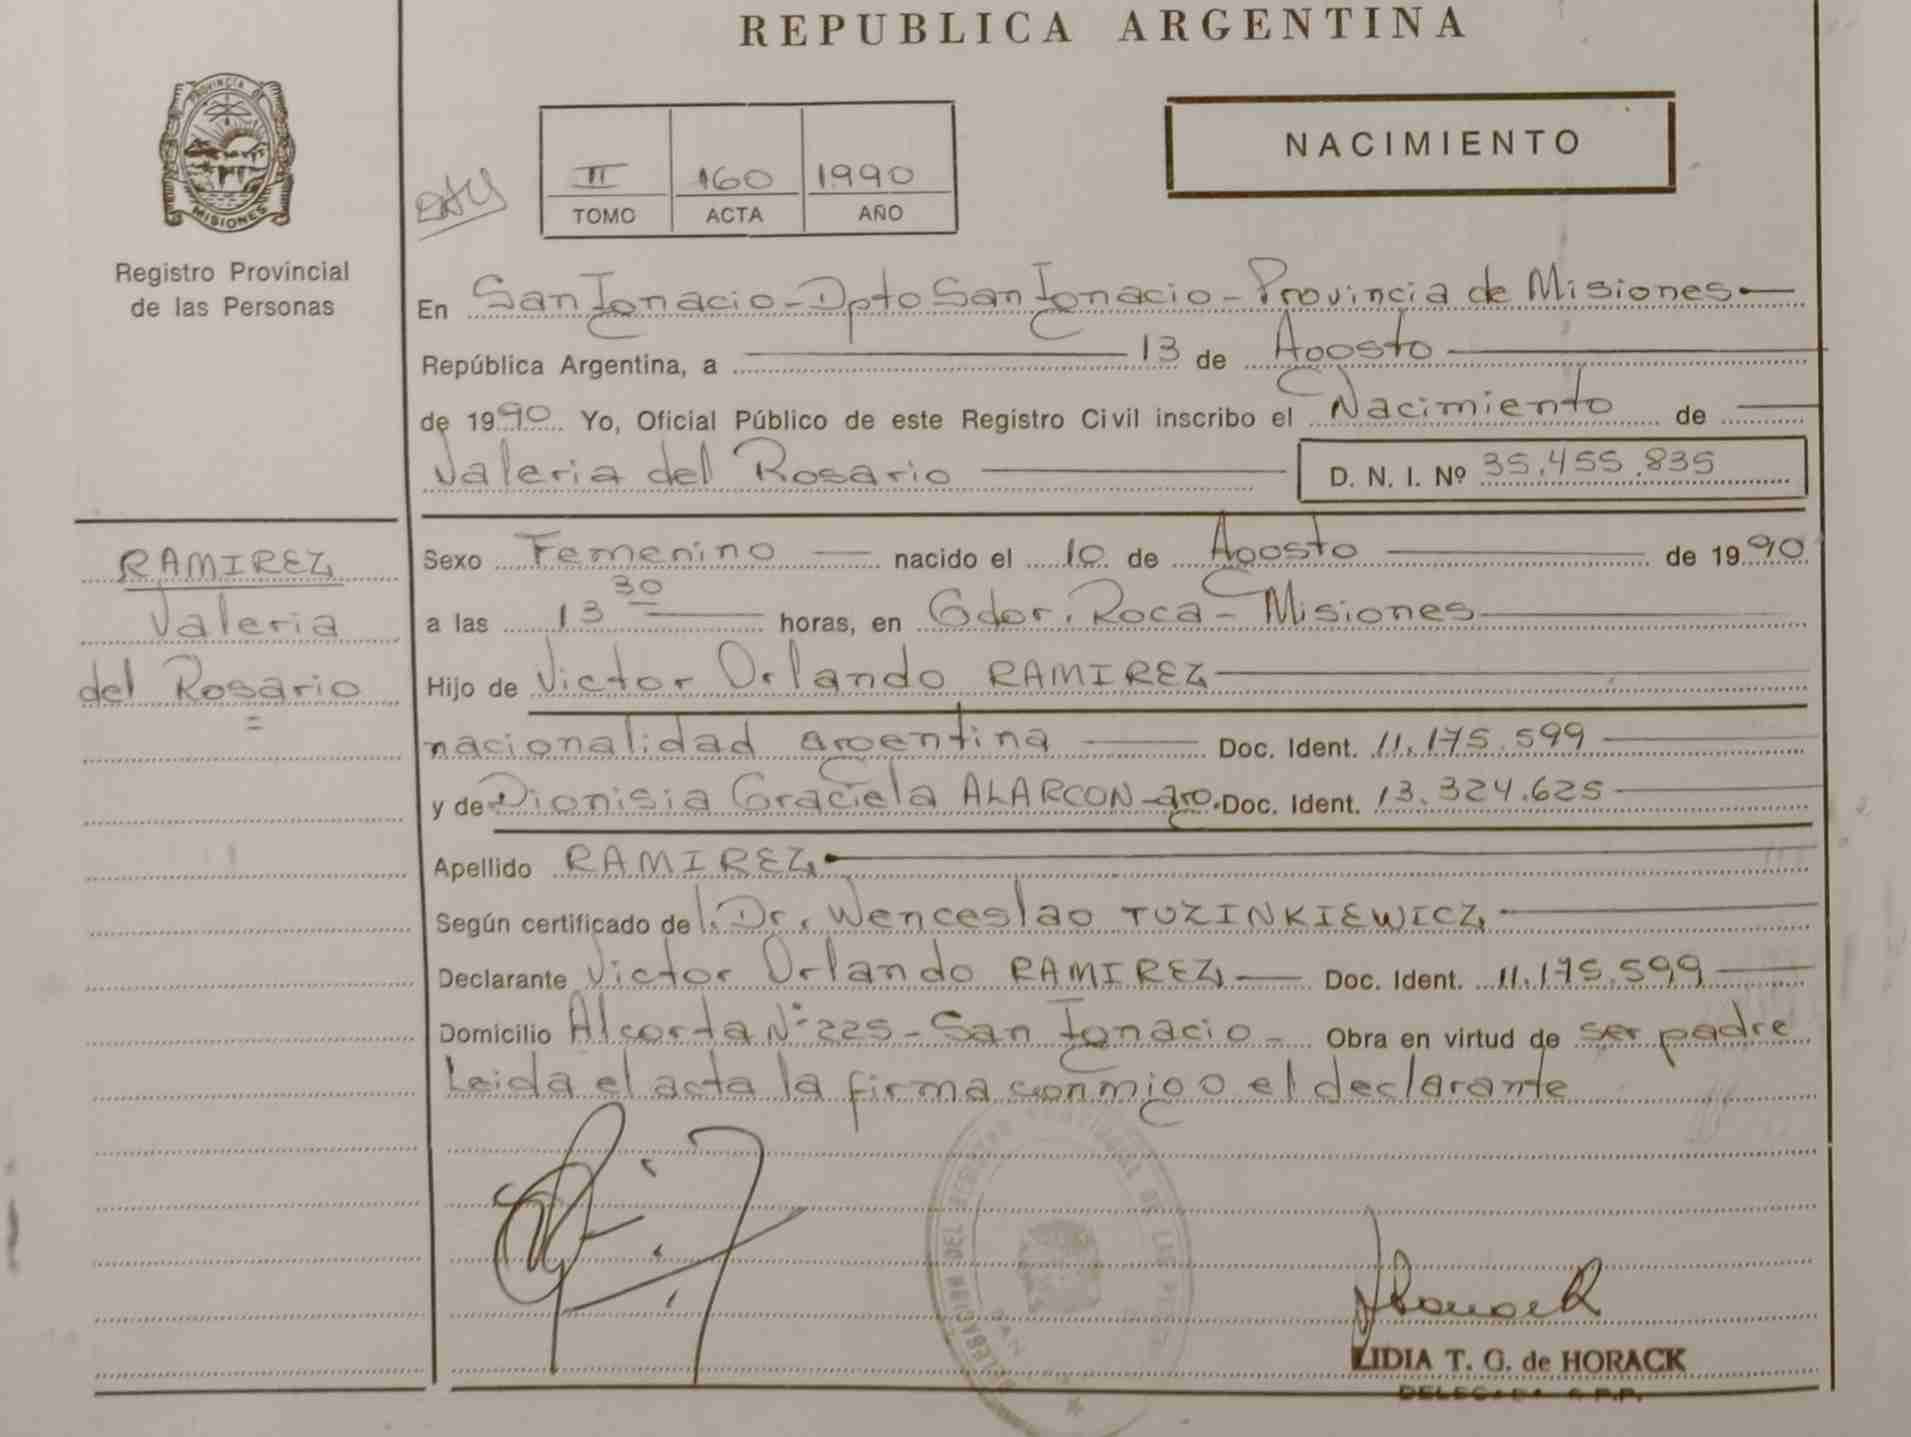 REPUBLICA ARGENTINA
PROVINCIA DE
MISIONES
Registro Provincial
de las Personas
II 160 1990
TOMO ACTA AÑO
NACIMIENTO
En San Ignacio - Dpto San Ignacio - Provincia de Misiones
República Argentina, a 13 de Agosto
de 1990 Yo, Oficial Público de este Registro Civil inscribo el Nacimiento de
Valeria del Rosario D. N. I. Nº 35.455.835
RAMIREZ
Valeria
del Rosario
Sexo Femenino nacido el 10 de Agosto de 1990
a las 13 30 horas, en Gdor. Roca - Misiones
Hijo de Victor Orlando RAMIREZ
nacionalidad argentina Doc. Ident. 11.175.599
y de Dionisia Graciela ALARCON - arg. Doc. Ident. 13.324.625
Apellido RAMIREZ
Según certificado del Dr. Wenceslao TUZINKIEWICZ
Declarante Victor Orlando RAMIREZ Doc. Ident. 11.175.599
Domicilio Alcorta Nº 225 - San Ignacio - Obra en virtud de ser padre
Leida el acta la firma conmigo el declarante
LIDIA T. G. de HORACK